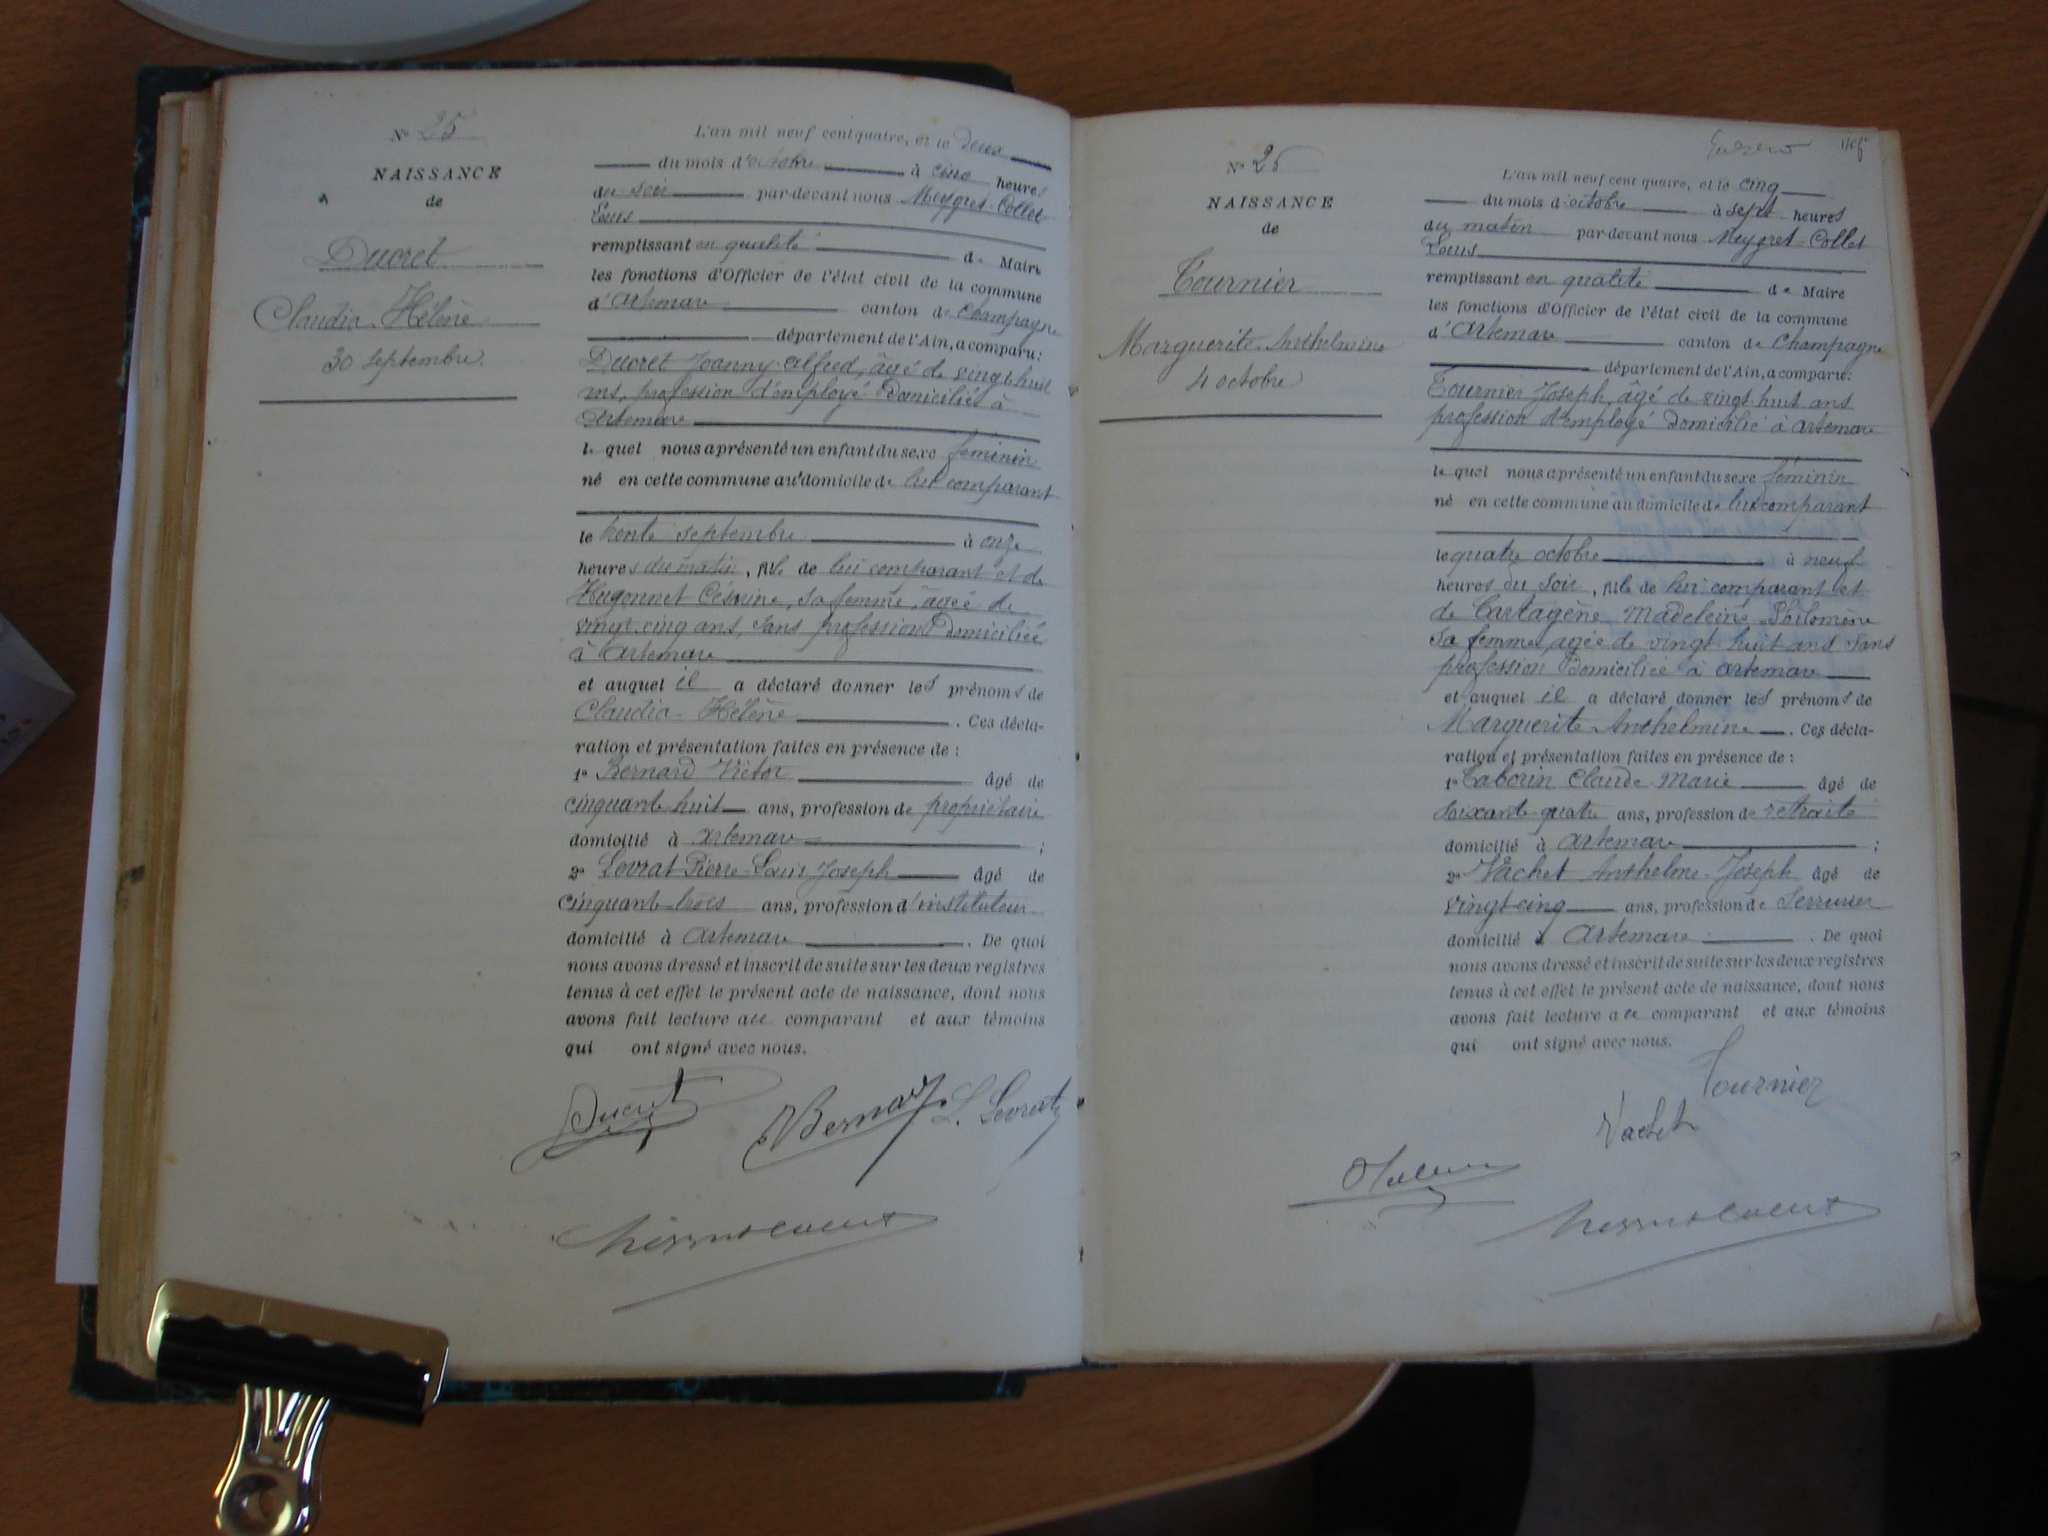 N° 25
NAISSANCE
de
Ducret
Claudia Hélène
30 septembre.
L'an mil neuf cent quatre, et le deux
du mois d'octobre à cinq heures
du soir par-devant nous Meygret-Collet
Louis
remplissant en qualité de Maire
les fonctions d'Officier de l'état civil de la commune
d'Artemare canton de Champagne
département de l'Ain, a comparu:
Ducret Joanny Alfred, âgé de vingt huit
ans, profession d'employé domiciliés à
Artemare
le quel nous a présenté un enfant du sexe féminin
né en cette commune au domicile de lui comparant
le trente septembre à onze
heures du matin, fille de lui comparant et de
Hugonnet Césarine, sa femme, âgée de
vingt cinq ans, sans profession domiciliée
à Artemare
et auquel il a déclaré donner les prénoms de
Claudia-Hélène. Ces décla-
ration et présentation faites en présence de :
1° Bernard Victor âgé de
cinquante huit ans, profession de propriétaire
domicilié à Artemare ;
2° Levrat Pierre-Louis Joseph âgé de
cinquante-trois ans, profession d'instituteur
domicilié à Artemare. De quoi
nous avons dressé et inscrit de suite sur les deux registres
tenus à cet effet le présent acte de naissance, dont nous
avons fait lecture au comparant et aux témoins
qui ont signé avec nous.
Ducret Bernard L. Levrat
1105
N° 26
NAISSANCE
de
Tournier
Marguerite Anthelmine
4 octobre
L'an mil neuf cent quatre, et le cinq
du mois d'octobre à sept heures
du matin par-devant nous Meygret-Collet
Louis
remplissant en qualité de Maire
les fonctions d'Officier de l'état civil de la commune
d'Artemare canton de Champagne
département de l'Ain, a comparu:
Tournier Joseph, âgé de vingt huit ans
profession d'employé domicilié à Artemare
le quel nous a présenté un enfant du sexe féminin
né en cette commune au domicile de lui comparant
le quatre octobre à neuf
heures du soir, fille de lui comparant et
de Cartagène Madeleine Philomène
sa femme, agée de vingt huit ans sans
profession domiciliée à Artemare
et auquel il a déclaré donner les prénoms de
Marguerite Anthelmine. Ces décla-
ration et présentation faites en présence de :
1° Tabouin Claude Marie âgé de
soixante-quatre ans, profession de retraité
domicilié à Artemare ;
2° Vachet Anthelme-Joseph âgé de
vingt-cinq ans, profession de serrurier
domicilié à Artemare. De quoi
nous avons dressé et inscrit de suite sur les deux registres
tenus à cet effet le présent acte de naissance, dont nous
avons fait lecture au comparant et aux témoins
qui ont signé avec nous.
Tournier
Vachet